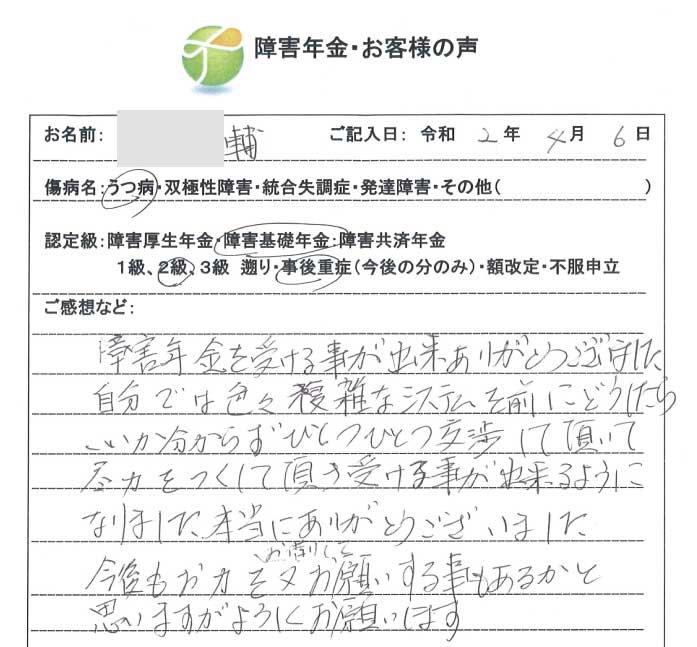 障害年金・お客様の声
お名前: 輔 ご記入日: 令和 2 年 4 月 6 日
傷病名:うつ病・双極性障害・統合失調症・発達障害・その他( )
認定級:障害厚生年金・障害基礎年金・障害共済年金
1級、2級、3級 遡り・事後重症(今後の分のみ)・額改定・不服申立
ご感想など:
障害年金を受ける事が出来ありがとうございました。
自分では色々複雑なシステムを前にどうしたら
いいか分からずひとつひとつ交渉して頂いて
尽力をつくして頂き受ける事が出来るように
なりました。本当にありがとうございました。
お借りして
今後もお力を又お願いする事もあるかと
思いますがようしくお願いします